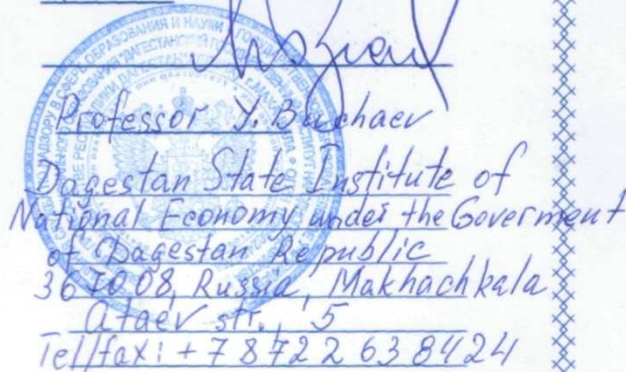 Professor Y. Buchaev
Dagestan State Institute of
National Economy under the Goverment
of Dagestan Republic
367008, Russia, Makhachkala
Ataev str., 5
Tel/fax: + 7 8722 638424